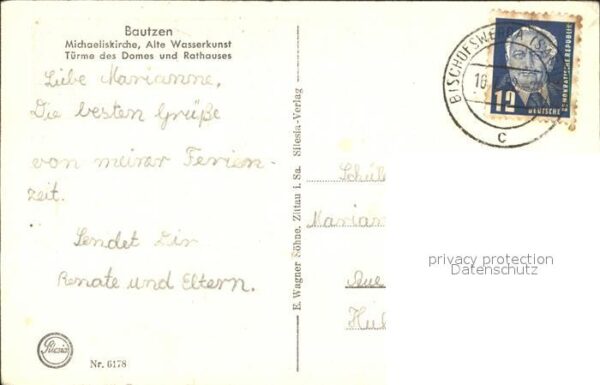 Bautzen
Michaeliskirche, Alte Wasserkunst
Türme des Domes und Rathauses
Liebe Marianne,
Die besten Grüße
von meiner Ferien-
zeit.
Sendet Dir
Renate und Eltern.
Silesia
Nr. 6178
E. Wagner Söhne, Zittau i. Sa. Silesia-Verlag
BISCHOFSWERDA (S
16
c
12
DEUTSCHE
DEMOKRATISCHE REPUBLIK
Schül
Marian
privacy protection
Datenschutz